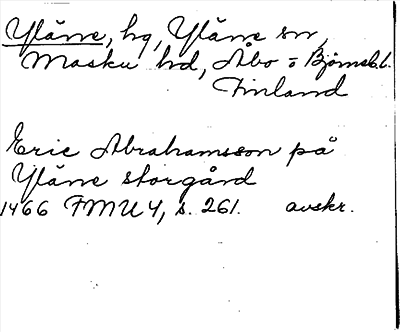 Yläne, hg, Yläne sn,
Masku hd, Åbo o Björneb. l.
Finland
Eric Abrahamsson på
Yläne storgård
1466 FMU 4, s. 261. avskr.